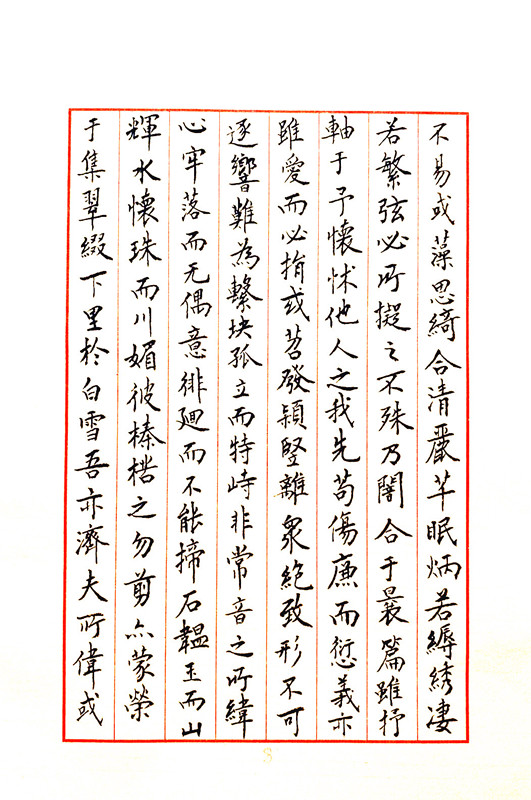 不易或藻思綺合清麗芊眠炳若縟綉凄
若繁弦必所擬之不殊乃闇合于曩篇雖抒
軸于予懷怵他人之我先苟傷廉而愆義亦
雖愛而必捐或苕發穎竪離衆絕致形不可
逐響難為繫块孤立而特峙非常音之所緯
心牢落而无偶意徘廻而不能揥石韞玉而山
輝水懷珠而川媚彼榛楛之勿剪亦蒙榮
于集翠綴下里於白雪吾亦濟夫所偉或
3